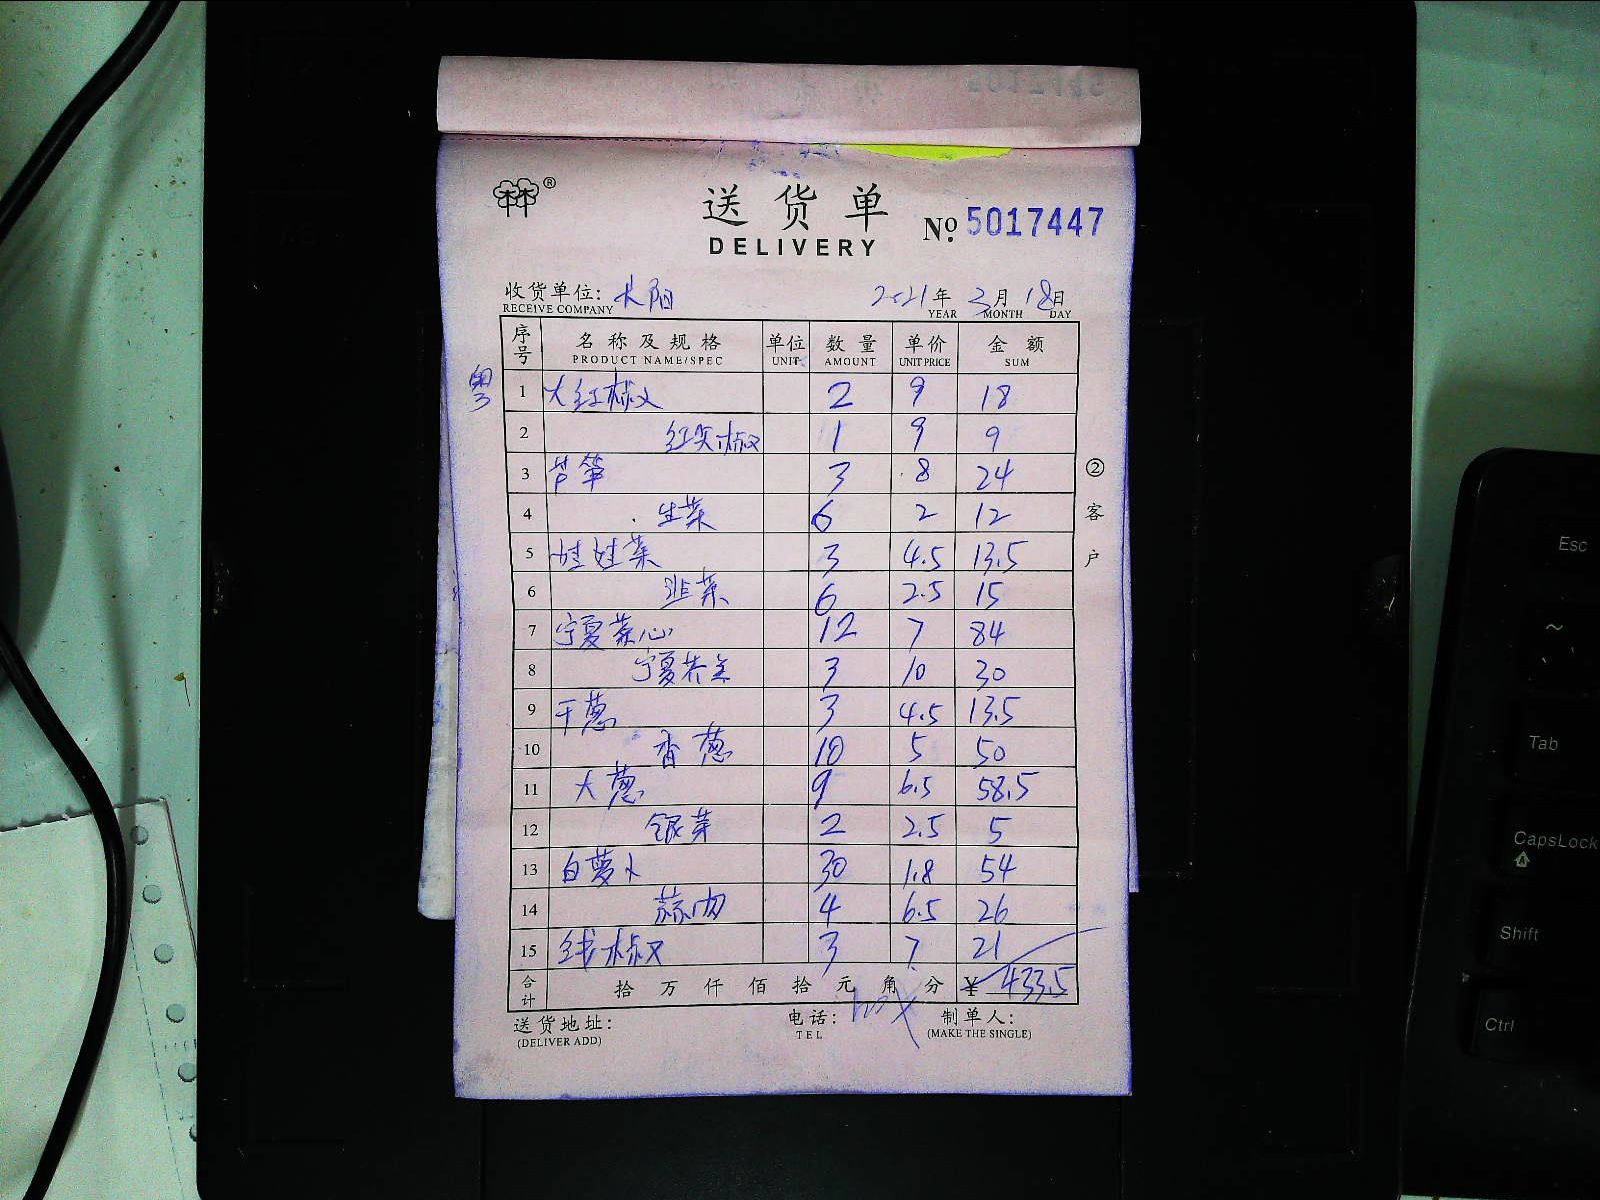 送货单
DELIVERY
No. 5017447
收货单位: 长阳 2021年 3月 18日
RECEIVE COMPANY YEAR MONTH DAY
序号 名称及规格 单位 数量 单价 金额
PRODUCT NAME/SPEC UNIT AMOUNT UNIT PRICE SUM
粤
1 大红椒 2 9 18
2 红尖椒 1 9 9
3 芦笋 3 8 24
4 生菜 6 2 12
5 娃娃菜 3 4.5 13.5
6 韭菜 6 2.5 15
7 宁夏菜心 12 7 84
8 宁夏芥兰 3 10 30
9 干葱 3 4.5 13.5
10 香葱 10 5 50
11 大葱 9 6.5 58.5
12 银芽 2 2.5 5
13 白萝卜 30 1.8 54
14 蒜肉 4 6.5 26
15 线椒 3 7 21
合计 拾 万 仟 佰 拾 元 角 分 ¥ 433.5
送货地址: 电话: 制单人:
(DELIVER ADD) TEL (MAKE THE SINGLE)
② 客户
Esc
~
Tab
CapsLock
Shift
Ctrl